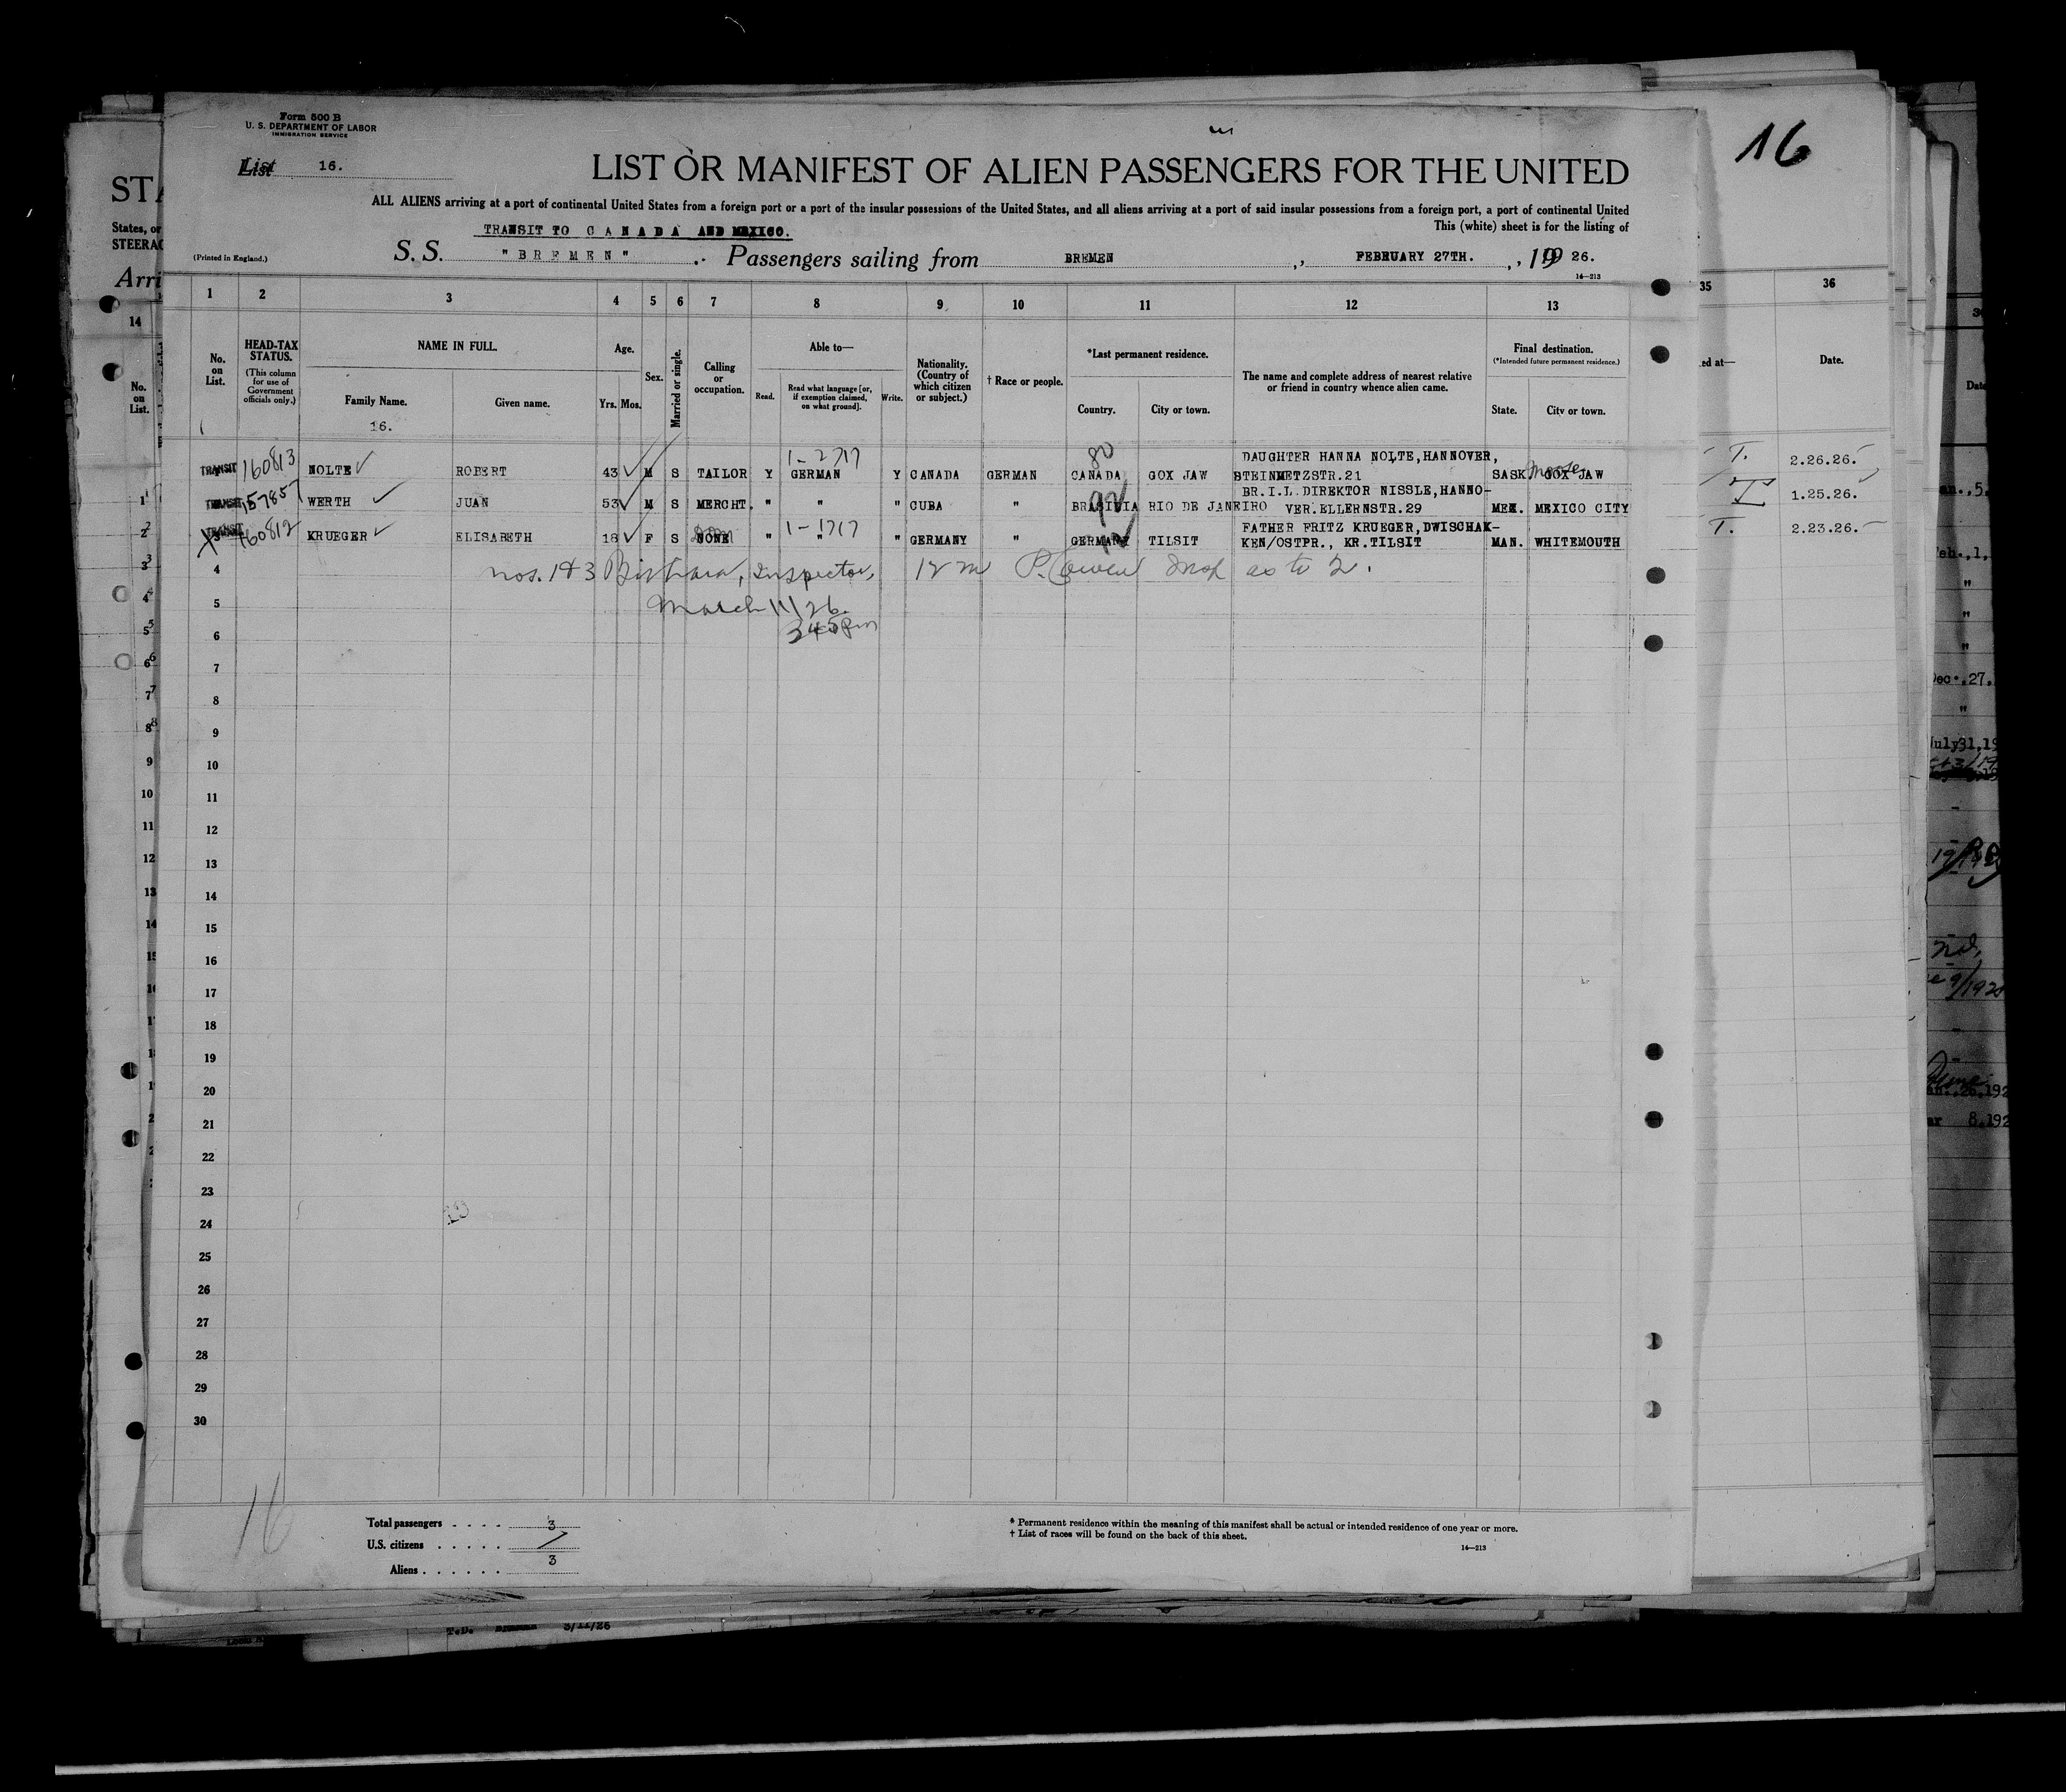 Form 500 B
U. S. DEPARTMENT OF LABOR
IMMIGRATION SERVICE
List 16.
16
LIST OR MANIFEST OF ALIEN PASSENGERS FOR THE UNITED
ALL ALIENS arriving at a port of continental United States from a foreign port or a port of the insular possessions of the United States, and all aliens arriving at a port of said insular possessions from a foreign port, a port of continental United
This (white) sheet is for the listing of
TRANSIT TO CANADA AND MEXICO.
(Printed in England.)
S. S. "BREMEN" Passengers sailing from BREMEN, FEBRUARY 27TH., 19 26.
14—213
1 2 3 4 5 6 7 8 9 10 11 12 13 35 36
No. on List.
HEAD-TAX STATUS.
(This column for use of Government officials only.)
NAME IN FULL.
Family Name. Given name.
16.
Age.
Yrs. Mos.
Sex.
Married or single.
Calling or occupation.
Able to—
Read. Read what language [or, if exemption claimed, on what ground]. Write.
Nationality. (Country of which citizen or subject.)
† Race or people.
*Last permanent residence.
Country. City or town.
The name and complete address of nearest relative or friend in country whence alien came.
Final destination.
(*Intended future permanent residence.)
State. City or town.
ed at— Date.
1-2717 80 DAUGHTER HANNA NOLTE,HANNOVER,
TRANSIT 160813 NOLTE ROBERT 43 M S TAILOR Y GERMAN Y CANADA GERMAN CANADA GOX JAW STEINMETZSTR.21 SASK. Moose GOX JAW T. 2.26.26.
BR.I.L.DIREKTOR NISSLE,HANNO-
TRANSIT 157857 WERTH JUAN 53 M S MERCHT. " " " CUBA " BRASILIA RIO DE JANEIRO VER.ELLERNSTR.29 MEX. MEXICO CITY T 1.25.26.
1-1717 FATHER FRITZ KRUEGER,DWISCHAK-
TRANSIT 160812 KRUEGER ELISABETH 18 F S NONE " " " GERMANY " GERMANY TILSIT KEN/OSTPR., KR.TILSIT MAN. WHITEMOUTH T. 2.23.26.
4 nos. 1 & 3 Inspector, 12 m P. Cowen Insp as to 2.
5 March 11/26.
6 345 pm
7
8
9
10
11
12
13
14
15
16
17
18
19
20
21
22
23
24
25
26
27
28
29
30
16
Total passengers . . . . 3
U.S. citizens . . . . .
Aliens . . . . . . 3
* Permanent residence within the meaning of this manifest shall be actual or intended residence of one year or more.
† List of races will be found on the back of this sheet.
14—213
3/11/26